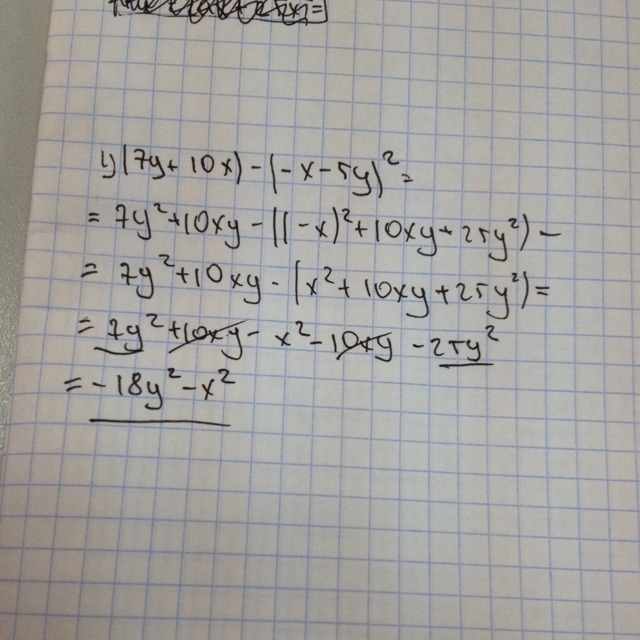 y(7y+10x)-(-x-5y)²=
=7y²+10xy-((-x)²+10xy+25y²)-
=7y²+10xy-(x²+10xy+25y²)=
=7y²+10xy-x²-10xy-25y²
=-18y²-x²